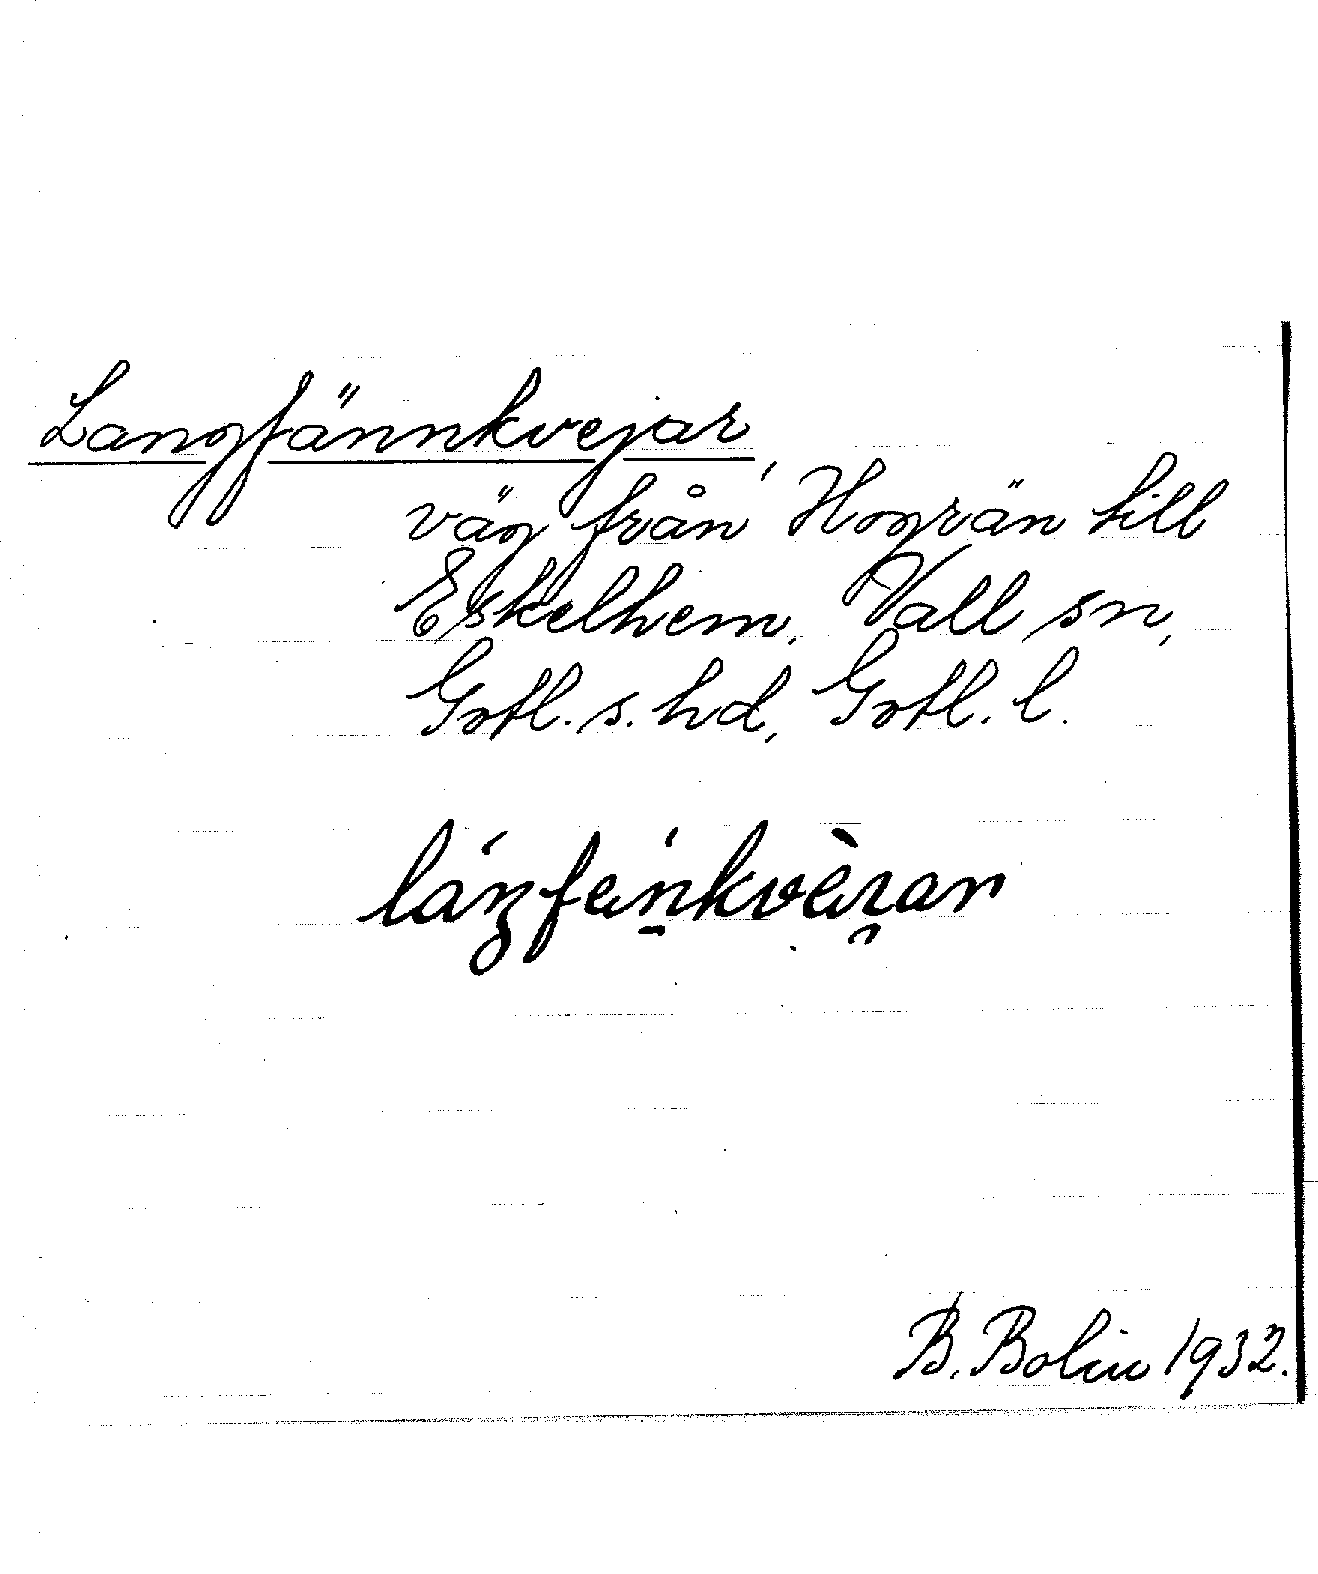 Langfännkvejar,
väg från Hogrän till
Eskelhem, Vall sn,
Gotl. s. hd, Gotl. l.
B. Bolin 1932.